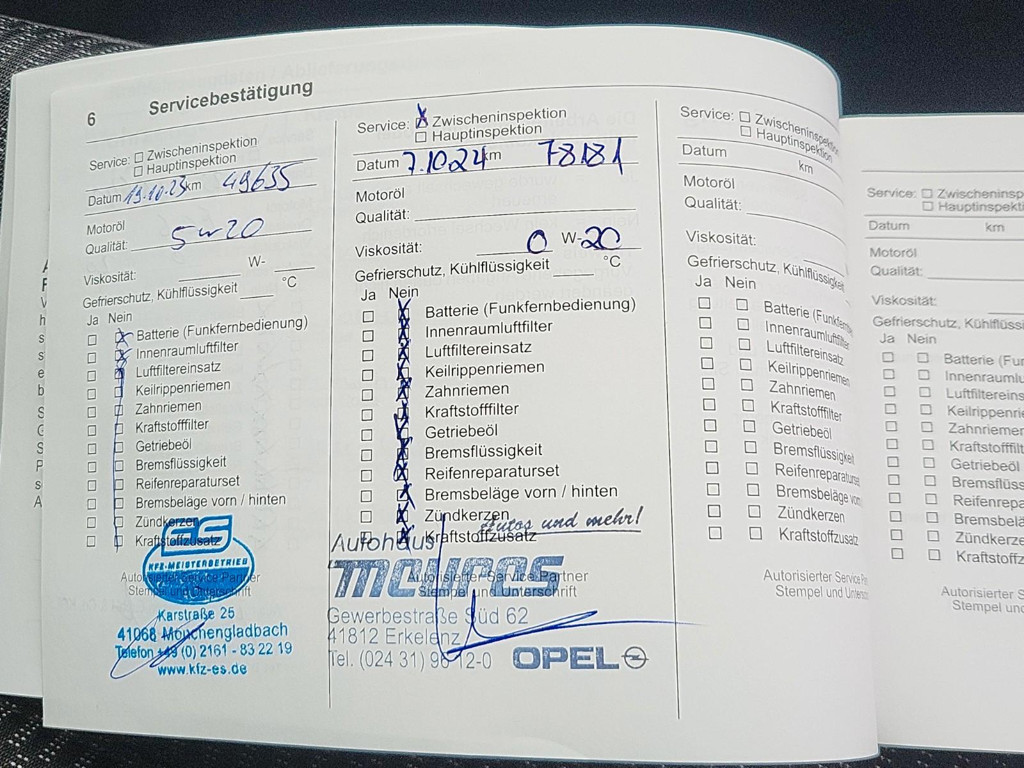 6 Servicebestätigung
Service: Zwischeninspektion
Hauptinspektion
Datum 19.10.23 km 49635
Motoröl
Qualität: 5w20
Viskosität: W-
Gefrierschutz, Kühlflüssigkeit °C
Ja Nein
Batterie (Funkfernbedienung)
Innenraumluftfilter
Luftfiltereinsatz
Keilrippenriemen
Zahnriemen
Kraftstofffilter
Getriebeöl
Bremsflüssigkeit
Reifenreparaturset
Bremsbeläge vorn / hinten
Zündkerzen
Kraftstoffzusatz
Autorisierter Service Partner
Stempel und Unterschrift
ES
KFZ-MEISTERBETRIEB
Karstraße 25
41068 Mönchengladbach
Telefon +49 (0) 2161 - 83 22 19
www.kfz-es.de
Service: x Zwischeninspektion
Hauptinspektion
Datum 7.10.24 km 78181
Motoröl
Qualität:
Viskosität: 0 W-20
Gefrierschutz, Kühlflüssigkeit °C
Ja Nein
Batterie (Funkfernbedienung)
Innenraumluftfilter
Luftfiltereinsatz
Keilrippenriemen
Zahnriemen
Kraftstofffilter
Getriebeöl
Bremsflüssigkeit
Reifenreparaturset
Bremsbeläge vorn / hinten
Zündkerzen
Kraftstoffzusatz
Autos und mehr!
Autohaus
Autorisierter Service Partner
Stempel und Unterschrift
Gewerbestraße Süd 62
41812 Erkelenz
Tel. (024 31) 96 12-0 OPEL
Service: Zwischeninspektion
Hauptinspektion
Datum km
Motoröl
Qualität:
Viskosität:
Gefrierschutz, Kühlflüssigkeit
Ja Nein
Batterie (Funkfernbe
Innenraumluftfilter
Luftfiltereinsatz
Keilrippenriemen
Zahnriemen
Kraftstofffilter
Getriebeöl
Bremsflüssigkeit
Reifenreparaturset
Bremsbeläge vorn
Zündkerzen
Kraftstoffzusatz
Autorisierter Service Par
Stempel und Untersch
Service: Zwischeninsp
Hauptinspekti
Datum km
Motoröl
Qualität:
Viskosität:
Gefrierschutz, Kühlflüssig
Ja Nein
Batterie (Fun
Innenraumlu
Luftfiltereins
Keilrippenrie
Zahnriemen
Kraftstofff
Getriebeöl
Bremsflüss
Reifenrepa
Bremsbelä
Zündkerze
Kraftstoffz
Autorisierter S
Stempel und